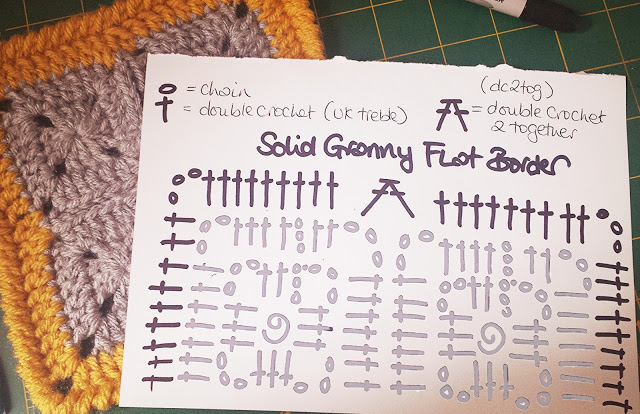 = chain
= double crochet (UK treble)
(dc2tog)
= double crochet
2 together
Solid Granny Flat Border